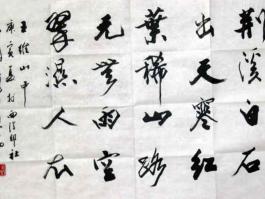 荆溪白石
出天寒红
葉稀山路
元無雨空
翠濕人衣
王維山中
庚寅夏於西泠印社